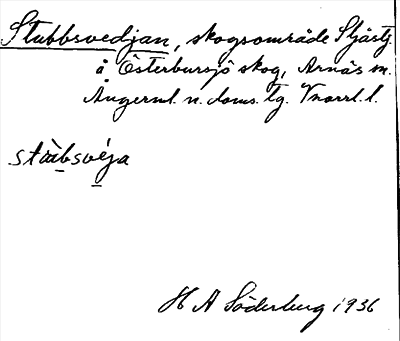 Stubbsvedjan, skogsområde Själstj.
å Österbursjö skog, Arnäs sn.
Ångerml. n. doms. tg. Vnorrl. l.
stàbsvéja
H A Söderberg 1936